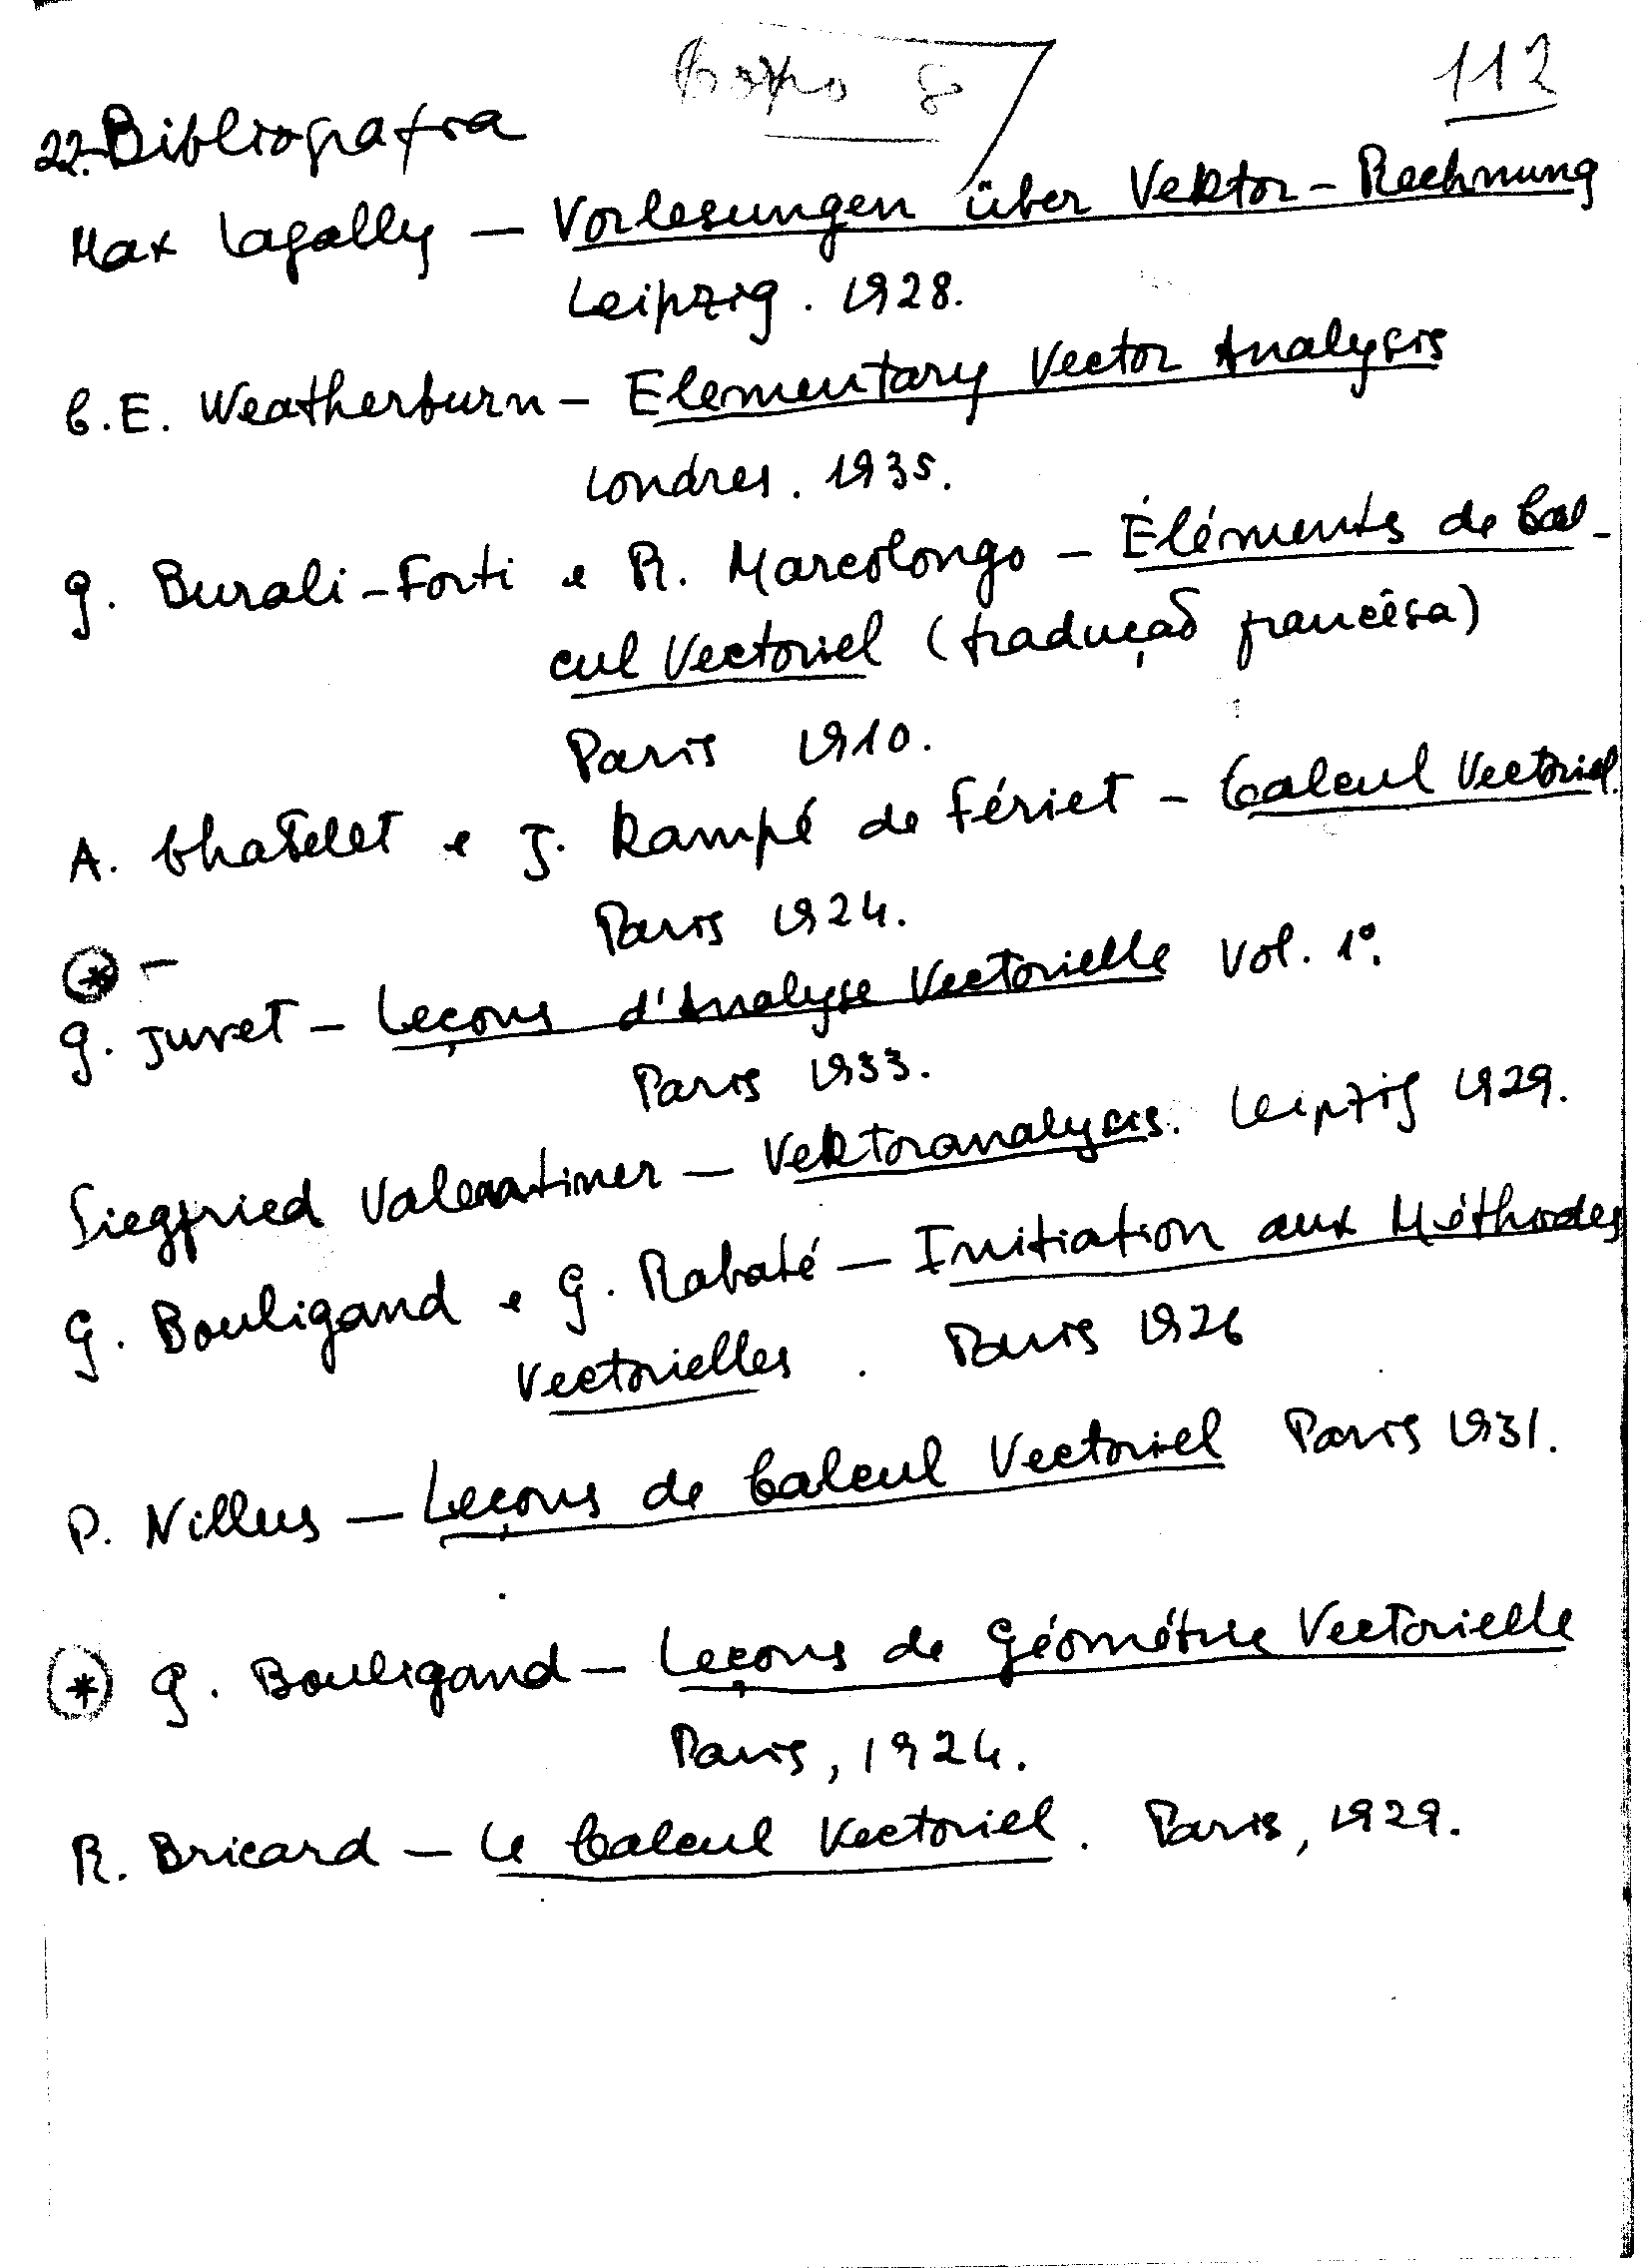 Corpo 8
112
22. Bibliografia
Max Lagally — Vorlesungen über Vektor-Rechnung
Leipzig. 1928.
C.E. Weatherburn — Elementary Vector Analysis
Londres. 1935.
G. Burali-Forti e R. Marcolongo — Éléments de Cal-
cul Vectoriel (tradução francêsa)
Paris 1910.
A. Chatelet e J. Kampé de Fériet — Calcul Vectoriel.
Paris 1924.
* —
G. Juvet — Leçons d'Analyse Vectorielle Vol. 1º.
Paris 1933.
Siegfried Valentiner — Vektoranalysis. Leipzig 1929.
G. Bouligand e G. Rabaté — Initiation aux Méthodes
Vectorielles. Paris 1926
P. Nillus — Leçons de Calcul Vectoriel Paris 1931.
* G. Bouligand — Leçons de Géométrie Vectorielle
Paris, 1924.
R. Bricard — Le Calcul Vectoriel. Paris, 1929.